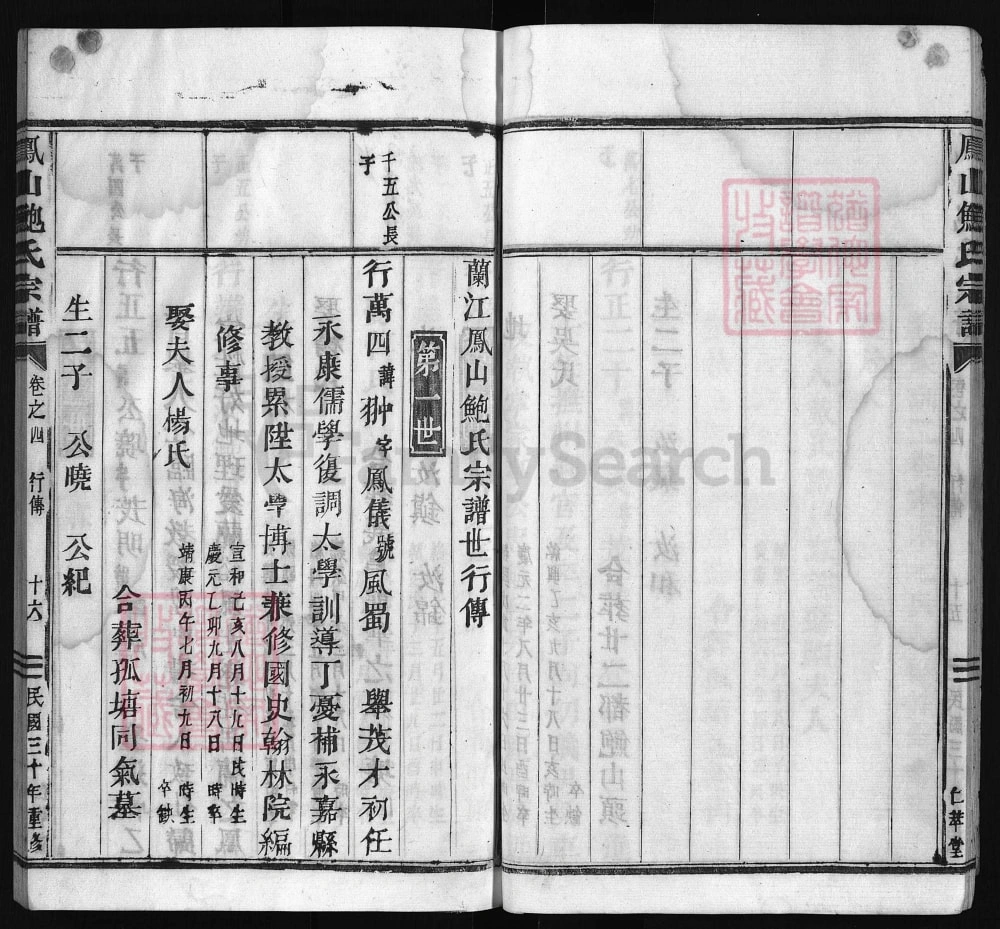 鳳山鮑氏宗譜
仁萃堂
蘭江鳳山鮑氏宗譜世行傳
第一世
千五公長
子
行萬四諱翀字鳳儀號風蜀 舉茂才初任
永康儒學復調太學訓導丁憂補永嘉縣
教授累陞太學博士兼修國史翰林院編
修事
宣和己亥八月十九日戌時生
慶元乙卯九月十八日 時卒
娶夫人楊氏
靖康丙午七月初九日 時生
卒缺
合葬孤塘同氣墓
生二子 公曉 公紀
鳳山鮑氏宗譜 卷之四 行傳 十六 民國三十年重修
FamilySearch